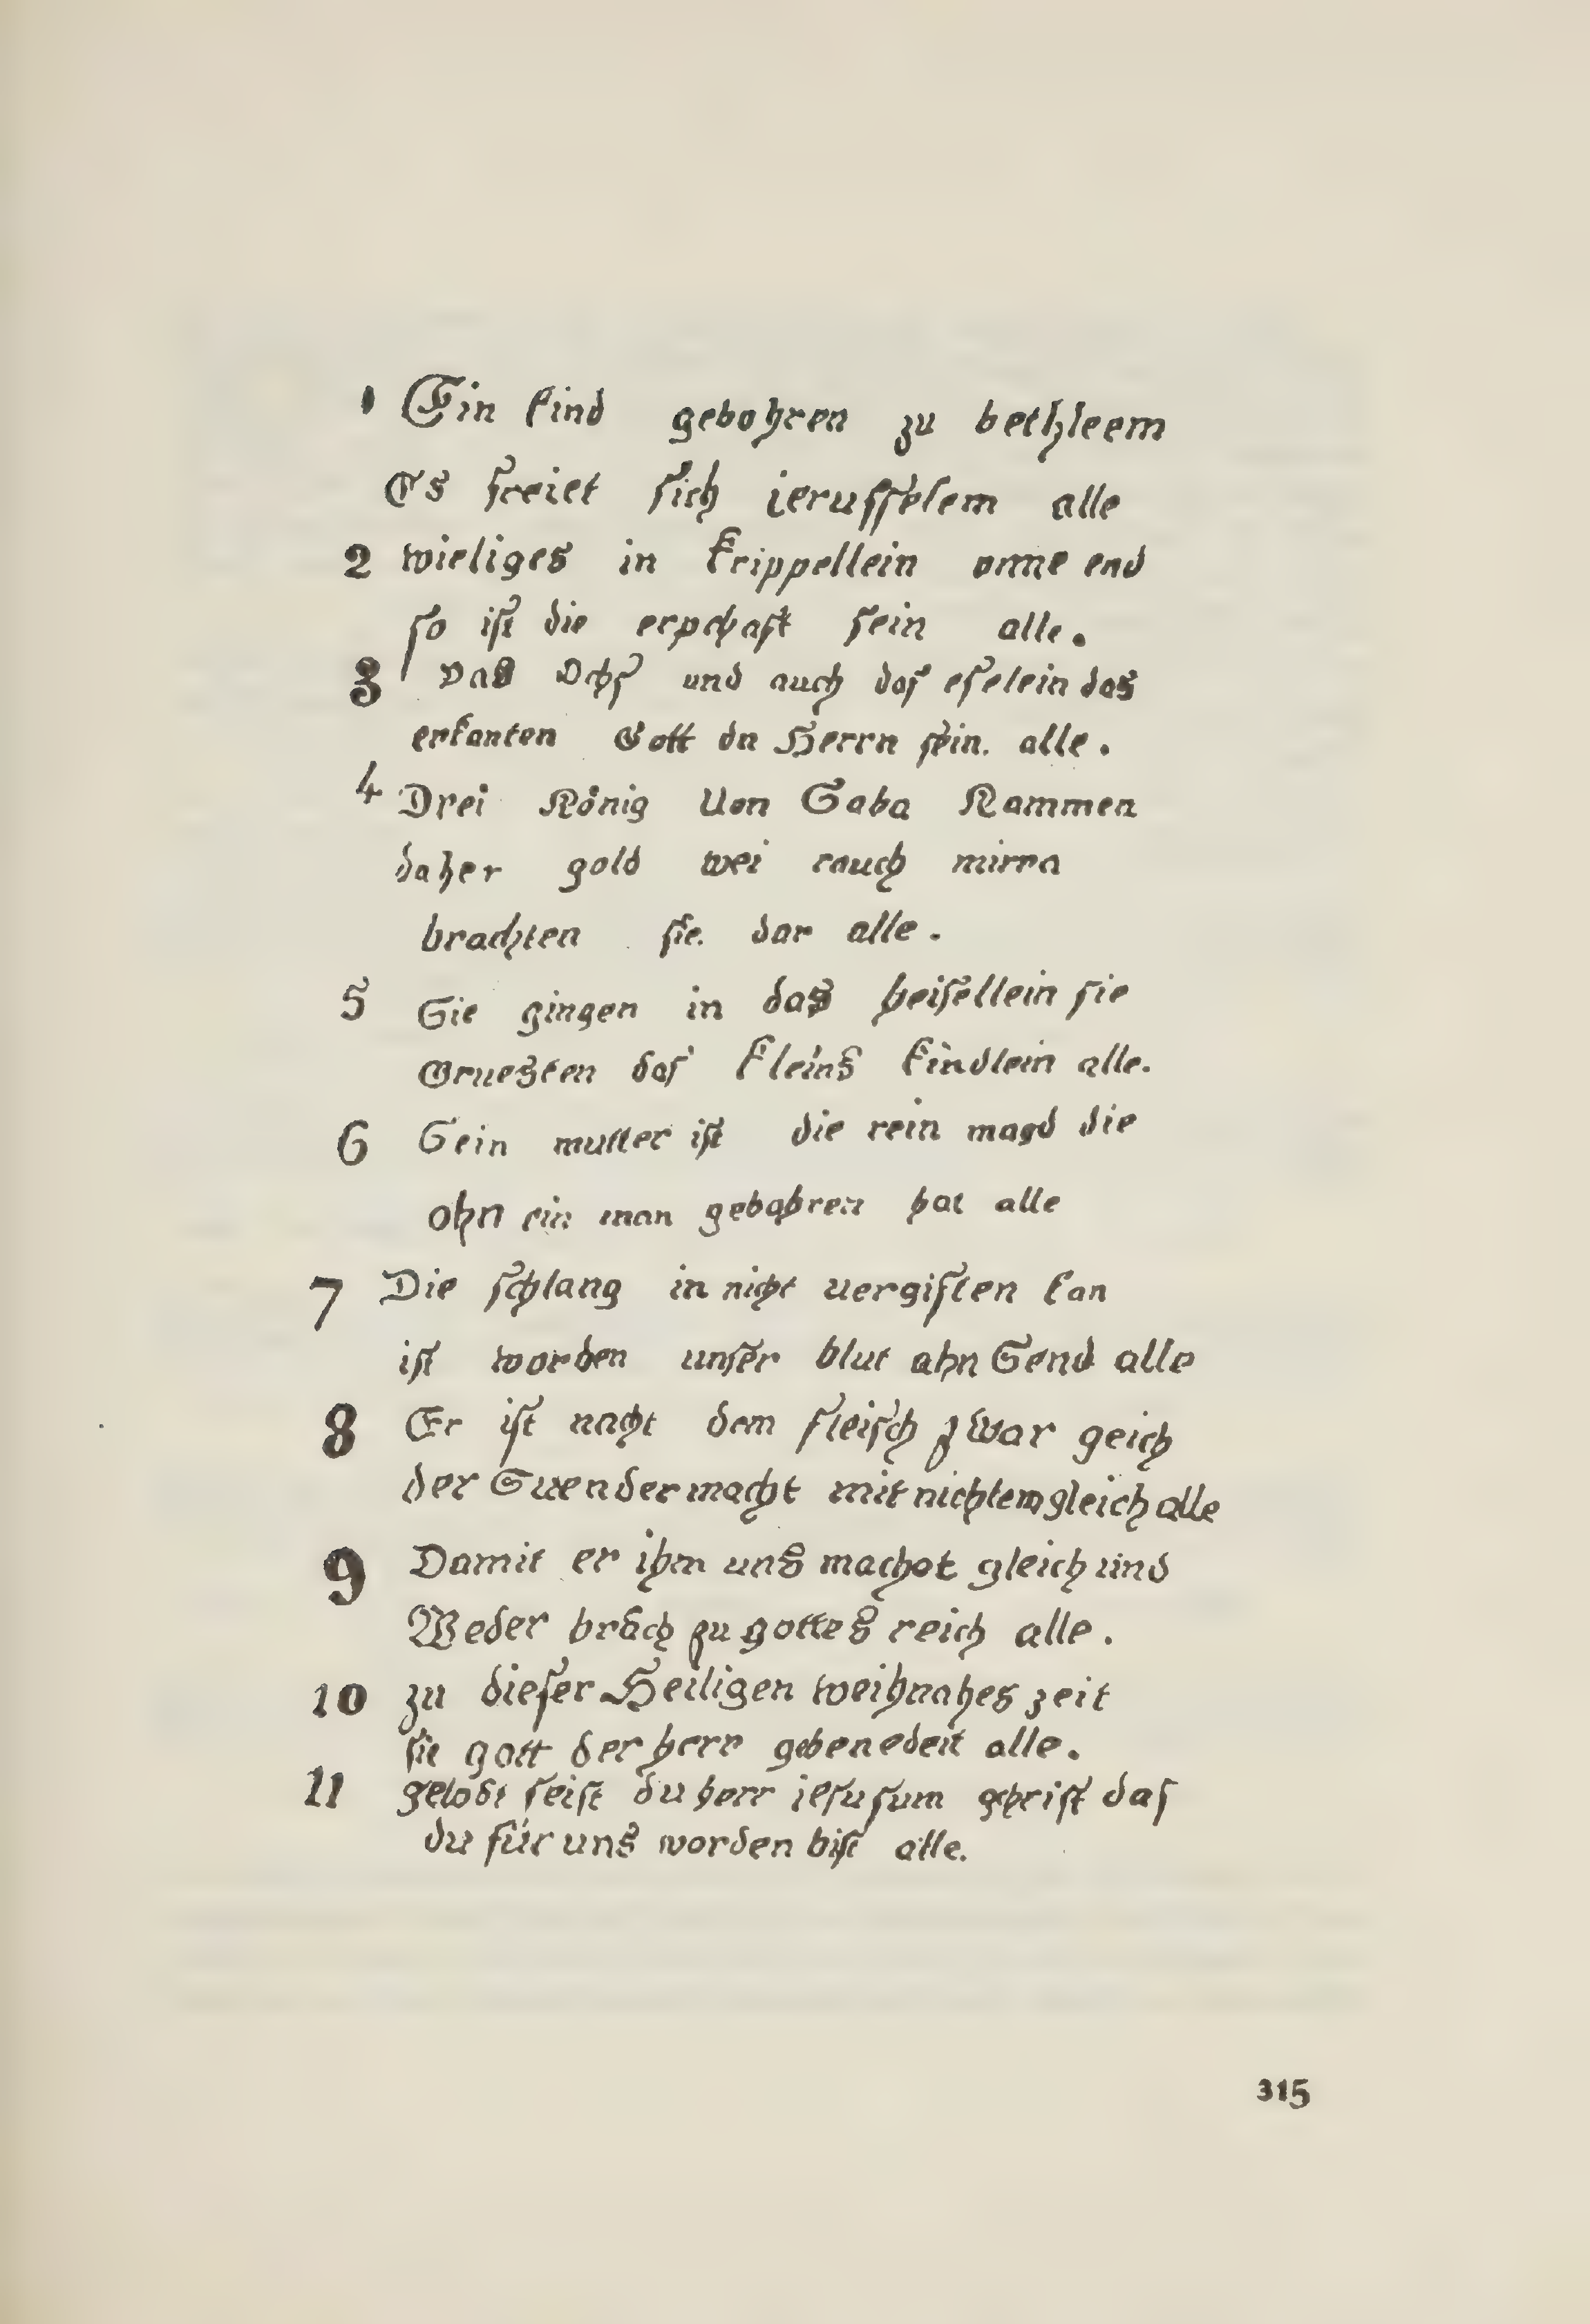 1 Ein kind gebohren zu bethleem
Es freiet sich ierusselem alle
2 wieliges in krippellein onne end
so ist die erpchaft sein alle.
3 Das Ochs und auch das eselein das
erkanten Gott dn Herrn sein. alle.
4 Drei König Uon Saba Kammen
daher gold wei rauch mirra
brachten sie. dar alle.
5 Sie gingen in das heisellein sie
Gruesten das kleins kindlein alle.
6 Sein mutter ist die rein magd die
ohn ein man gebahren hat alle
7 Die schlang in nicht uergiften kan
ist worden unser blut ahn Send alle
8 Er ist nacht dem fleisch zwar geich
der Suender macht mit nichtem gleich alle
9 Damit er ihm uns machet gleich und
Weder brach zu gottes reich alle.
10 zu dieser Heiligen weihnahes zeit
sie gott der herr gebenedeit alle.
11 gelobt seist du herr iesusum christ das
du für uns worden bist alle.
315